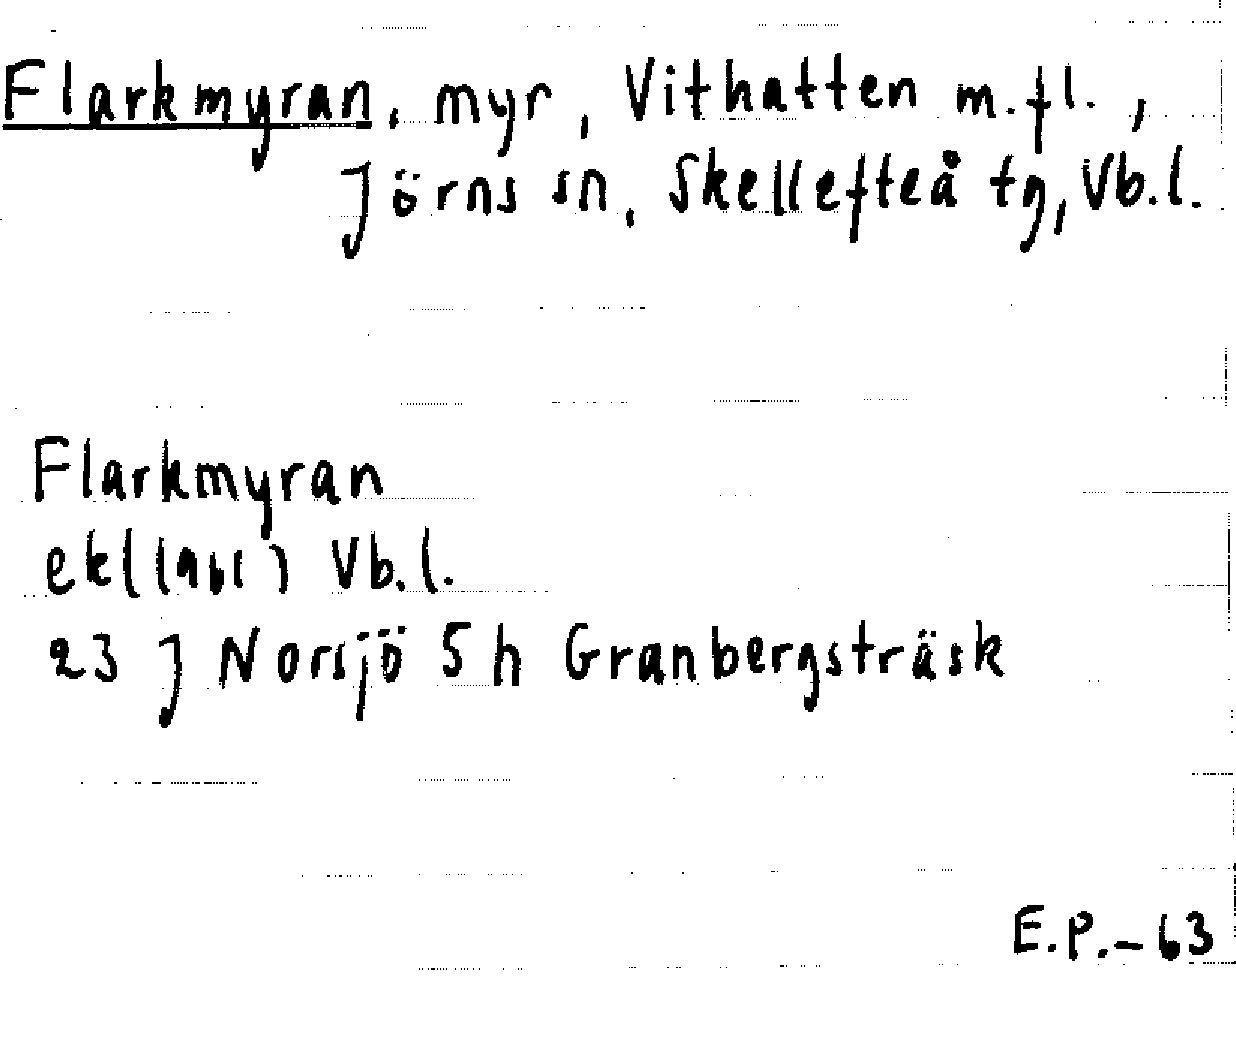 Flarkmyran, myr, Vithatten m.fl.,
Jörns sn, Skellefteå tg, Vb.l.
Flarkmyran
ekl(1961) Vb.l.
23 J Norsjö 5 h Granbergsträsk
E.P.-63